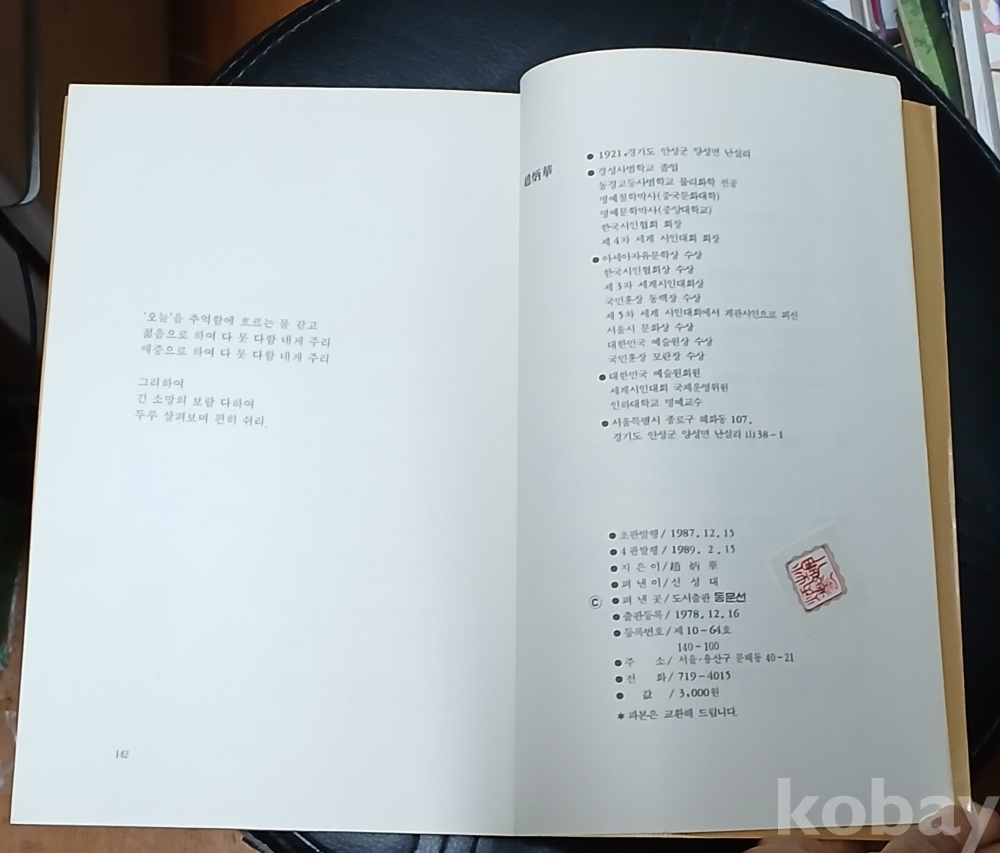 '오늘'을 추억함에 흐르는 물 같고
젊음으로 하여 다 못 다함 네게 주리
애증으로 하여 다 못 다함 네게 주리
그리하여
긴 소망의 보람 다하여
두루 살펴보며 편히 쉬리.
142
趙炳華
● 1921. 경기도 안성군 양성면 난실리
● 경성사범학교 졸업
동경고등사범학교 물리화학 전공
명예철학박사(중국문화대학)
명예문학박사(중앙대학교)
한국시인협회 회장
제4차 세계 시인대회 회장
● 아세아자유문학상 수상
한국시인협회상 수상
제3차 세계시인대회상
국민훈장 동백장 수상
제5차 세계 시인대회에서 계관시인으로 피선
서울시 문화상 수상
대한민국 예술원상 수상
국민훈장 모란장 수상
● 대한민국 예술원회원
세계시인대회 국제운영위원
인하대학교 명예교수
● 서울특별시 종로구 혜화동 107.
경기도 안성군 양성면 난실리 山38-1
● 초판발행/1987. 12. 15
● 4판발행/1989. 2. 15
● 지은이/趙炳華
● 펴낸이/신성대
ⓒ ● 펴낸곳/도서출판 동문선
● 출판등록/1978. 12. 16
● 등록번호/제10-64호
140-100
● 주 소/서울·용산구 문배동 40-21
● 전 화/719-4015
● 값 /3,000원
* 파본은 교환해 드립니다.
kobay